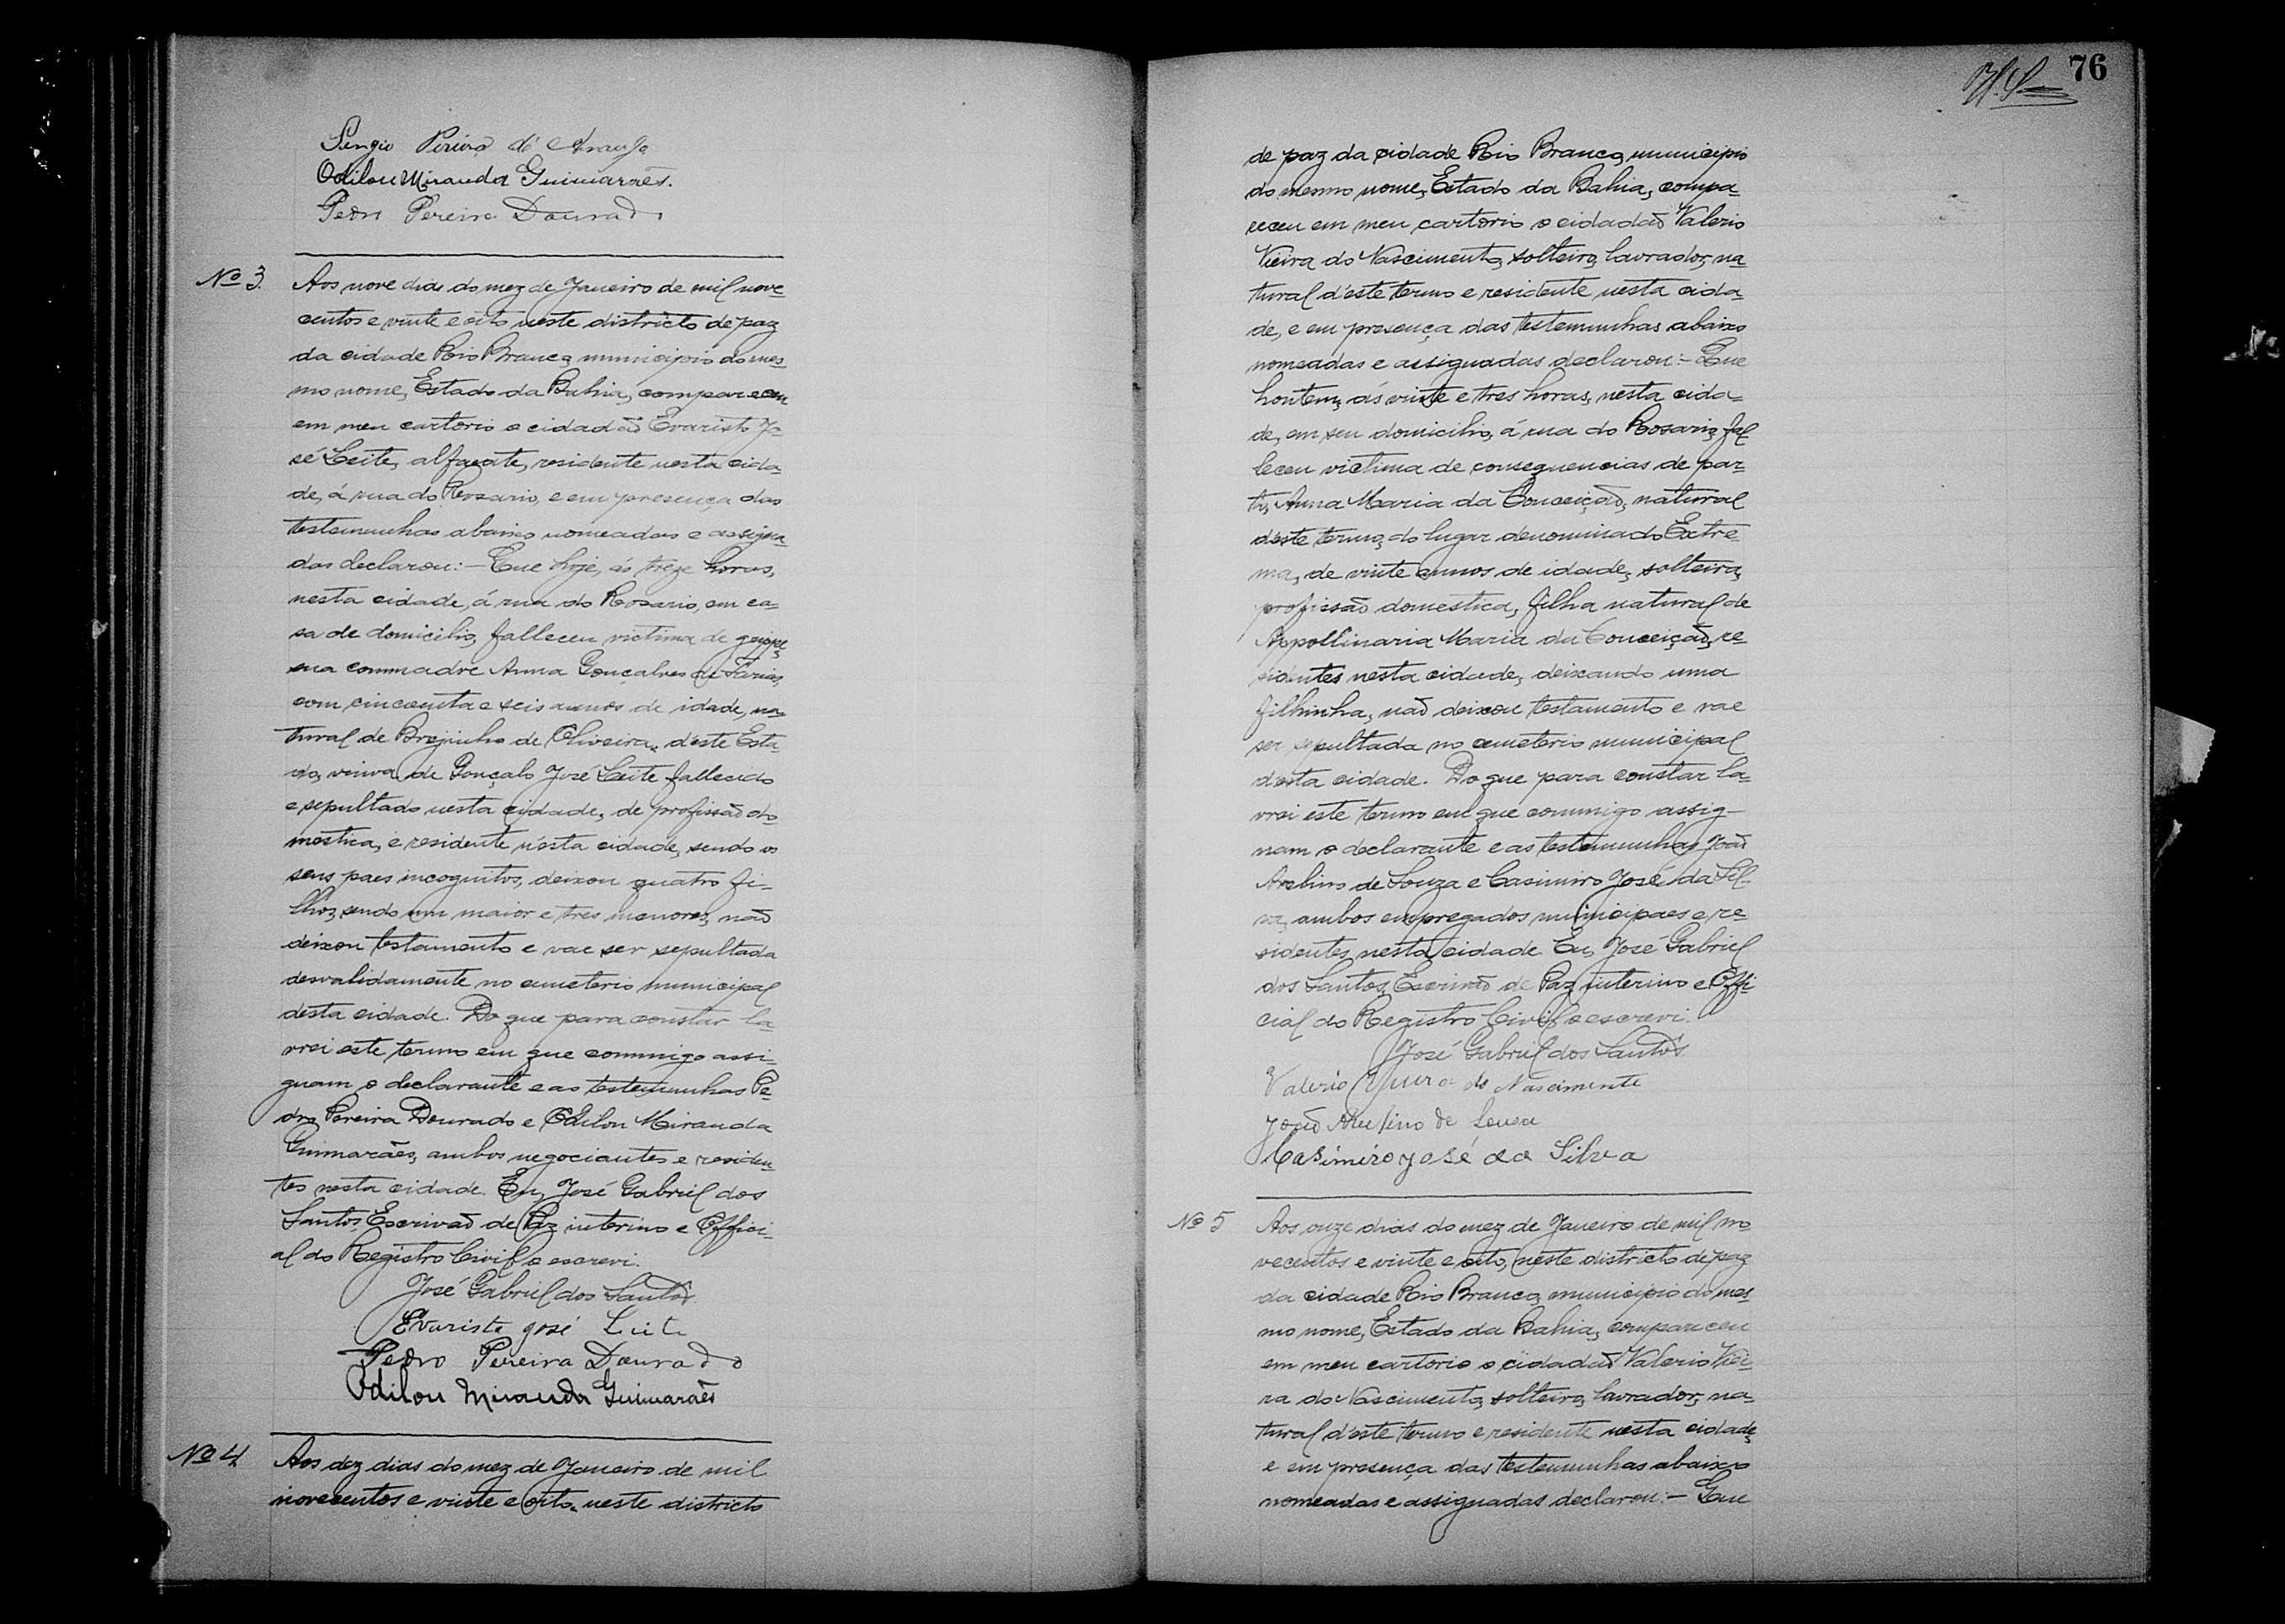 Sergio Pereira de Araujo
Odilon Miranda Guimarães.
Pedro Pereira Dourado
Nº 3. Aos nove dias do mez de Janeiro de mil nove-
centos e vinte e oito neste districto de paz
da cidade Rio Branco, municipio do mes-
mo nome, Estado da Bahia, compareceu
em meu cartorio o cidadão Evaristo Jo-
sé Leite, alfaiate, residente nesta cida-
de, á rua do Rosario, e em presença das
testemunhas abaixo nomeadas e assigna-
das declarou:- Que hoje, ás treze horas,
nesta cidade, á rua do Rosario, em ca-
sa de domicilio, falleceu victima de grippe,
sua commadre Anna Gonçalves de Farias,
com cincoenta e seis annos de idade, na-
tural de Brejinho de Oliveira, d'este Esta-
do, viuva de Gonçalo José Leite fallecido
e sepultado nesta cidade, de profissão do-
mestica, e residente n'esta cidade, sendo os
seus paes incognitos, deixou quatro fi-
lhos, sendo um maior e tres menores, não
deixou testamento e vae ser sepultada
desvalidamente no cemeterio municipal
desta cidade. Do que para constar la-
vrei este termo em que commigo assi-
gnam o declarante e as testemunhas Pe-
dro Pereira Dourado e Odilon Miranda
Guimarães, ambos negociantes e residen-
tes nesta cidade. Eu, José Gabriel dos
Santos, Escrivão de Paz interino e Offici-
al do Registro Civil o escrevi.
José Gabriel dos Santos
Evaristo José Leite
Pedro Pereira Dourado
Odilon Miranda Guimarães
Nº 4 Aos dez dias do mez de Janeiro de mil
novecentos e vinte e oito, neste districto
76
de paz da cidade Rio Branco, municipio
do mesmo nome, Estado da Bahia, compa-
receu em meu cartorio o cidadão Valerio
Vieira do Nascimento, solteiro, lavrador, na-
tural d'este termo e residente nesta cida-
de, e em presença das testemunhas abaixo
nomeadas e assignadas declarou:- Que
hontem, ás vinte e tres horas, nesta cida-
de, em seu domicilio, á rua do Rosario, fal
leceu victima de consequencias de par-
to, Anna Maria da Conceição, natural
d'este termo, do lugar denominado Extre
ma, de vinte annos de idade, solteira,
profissão domestica, filha natural de
Appollinaria Maria da Conceição, re-
sidentes nesta cidade, deixando uma
filhinha, não deixou testamento e vae
ser sepultada no cemeterio municipal
desta cidade. Do que para constar la-
vrei este termo em que commigo assig-
nam o declarante e as testemunhas João
Avelino de Souza e Casimiro José da Sil-
va, ambos empregados municipaes e re-
sidentes nesta cidade. Eu, José Gabriel
dos Santos, Escrivão de Paz interino e Offi-
cial do Registro Civil o escrevi.
José Gabriel dos Santos
Valerio Vieira do Nascimento
João Avelino de Sousa
Casimiro José da Silva
Nº 5 Aos onze dias do mez de Janeiro de mil no
vecentos e vinte e oito, neste districto de paz
da cidade Rio Branco, municipio do mes
mo nome, Estado da Bahia, compareceu
em meu cartorio o cidadão Valerio Viei-
ra do Nascimento, solteiro, lavrador, na-
tural d'este termo e residente nesta cidade,
e em presença das testemunhas abaixo
nomeadas e assignadas declarou:- Que